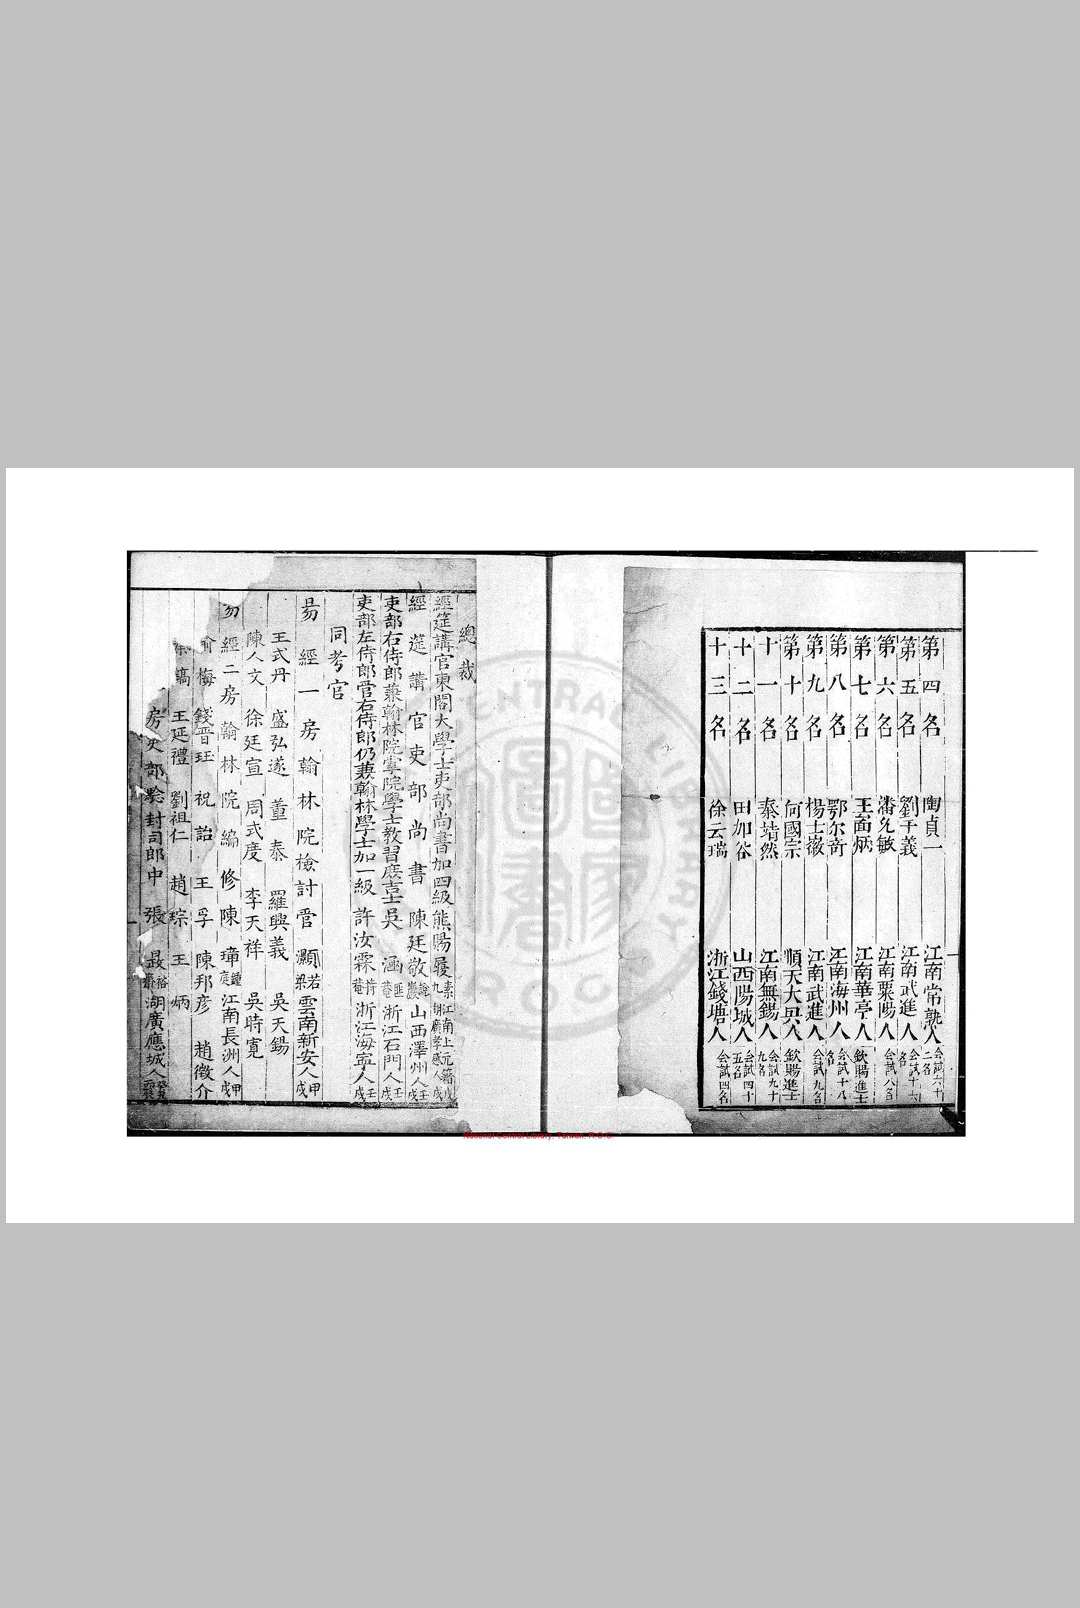 第四名 陶貞一 江南常熟人 会試六十二名
第五名 劉于義 江南武進人 会試十六名
第六名 潘允敏 江南栗陽人 会試八名
第七名 王啚炳 江南華亭人 欽賜進士
第八名 鄂尔奇 江南海州人 会試十八名
第九名 楊士徽 江南武進人 会試九名
第十名 何國宗 順天大興人 欽賜進士
十一名 秦靖然 江南無錫人 会試九十九名
十二名 田加谷 山西陽城人 会試四十五名
十三名 徐云瑞 浙江錢塘人 会試四名
總裁
經筵講官東閣大學士吏部尚書加四級熊賜履 素九 江南上元籍湖廣孝感人戊戌
經筵講官吏部尚書陳廷敬 巖 山西澤州人 戊
吏部右侍郎兼翰林院掌院學士教習庶吉士吳涵 匪菴 浙江石門人 壬戌
吏部左侍郎管右侍郎仍兼翰林學士加一級許汝霖 菴 浙江海寧人 壬戌
同考官
易經一房翰林院檢討管灝 若梁 雲南新安人 甲戌
王式丹 盛弘邃 董泰 羅興義 吳天錫
陳人文 徐廷宣 周式度 李天祥 吳時寬
易經二房翰林院編修陳璋 鍾庭 江南長洲人 甲戌
俞梅 錢晋珏 祝詒 王孚 陳邦彦 趙徵介
縞 王延禮 劉祖仁 趙琮 王炳
房吏部驗封司郎中張 裕 湖廣應城人
CENTRAL LIBRARY
R.O.C
National Central Library, Taiwan, R.O.C.